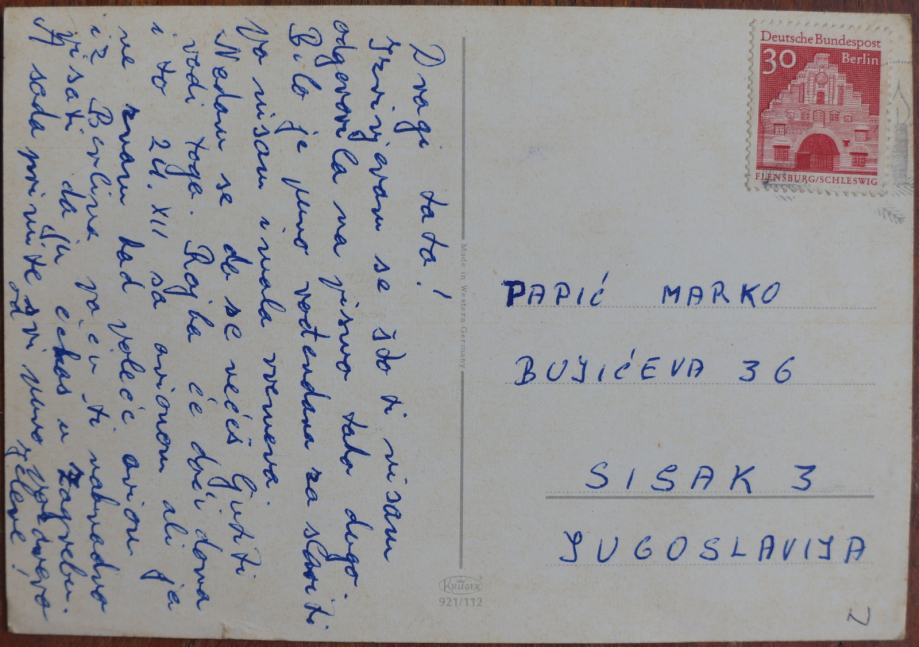 Dragi tata!
Izvinjavam se što ti nisam
odgovorila na pismo tako dugo.
Bilo je puno rođendana za slaviti
pa nisam imala vremena.
Nadam se da se nećeš ljutiti
radi toga. će doći doma
i to 21. XII sa avionom ali ja
ne znam kad poleće avion
iz Berlina pa ću ti naknadno
pisati da ju čekaš u Zagrebu.
A sada primite svi puno pozdrava
od
Made in Western Germany
Krüger
921/112
Deutsche Bundespost
30 Berlin
FLENSBURG/SCHLESWIG
PAPIĆ MARKO
BUJIĆEVA 36
SISAK 3
JUGOSLAVIJA
N